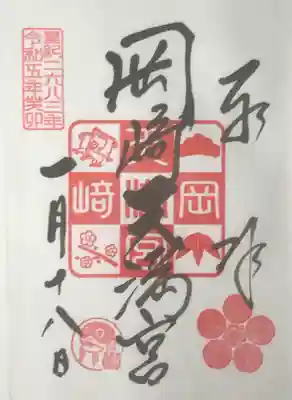 奉拝
岡﨑天満宮
一月十八日
皇紀二六八三年
令和五年癸卯
岡﨑
天満宮